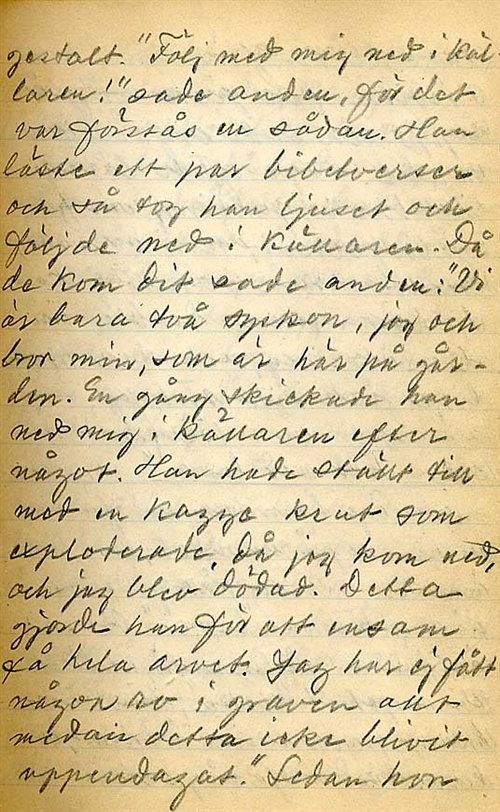 gestalt. "Följ med mig ned i käl-
laren!" sade anden, för det
var förstås en sådan. Han
läste ett par bibelverser
och så tog han ljuset och
följde ned i källaren. Då
de kom dit sade anden: "Vi
är bara två syskon, jag och
bror min, som är här på går-
den. En gång skickade han
ned mig i källaren efter
något. Han hade ställt till
med en kagge krut som
exploderade, då jag kom ned,
och jag blev dödad. Detta
gjorde han för att ensam
få hela arvet. Jag har ej fått
någon ro i graven allt
medan detta icke blivit
uppendagat." Sedan hon